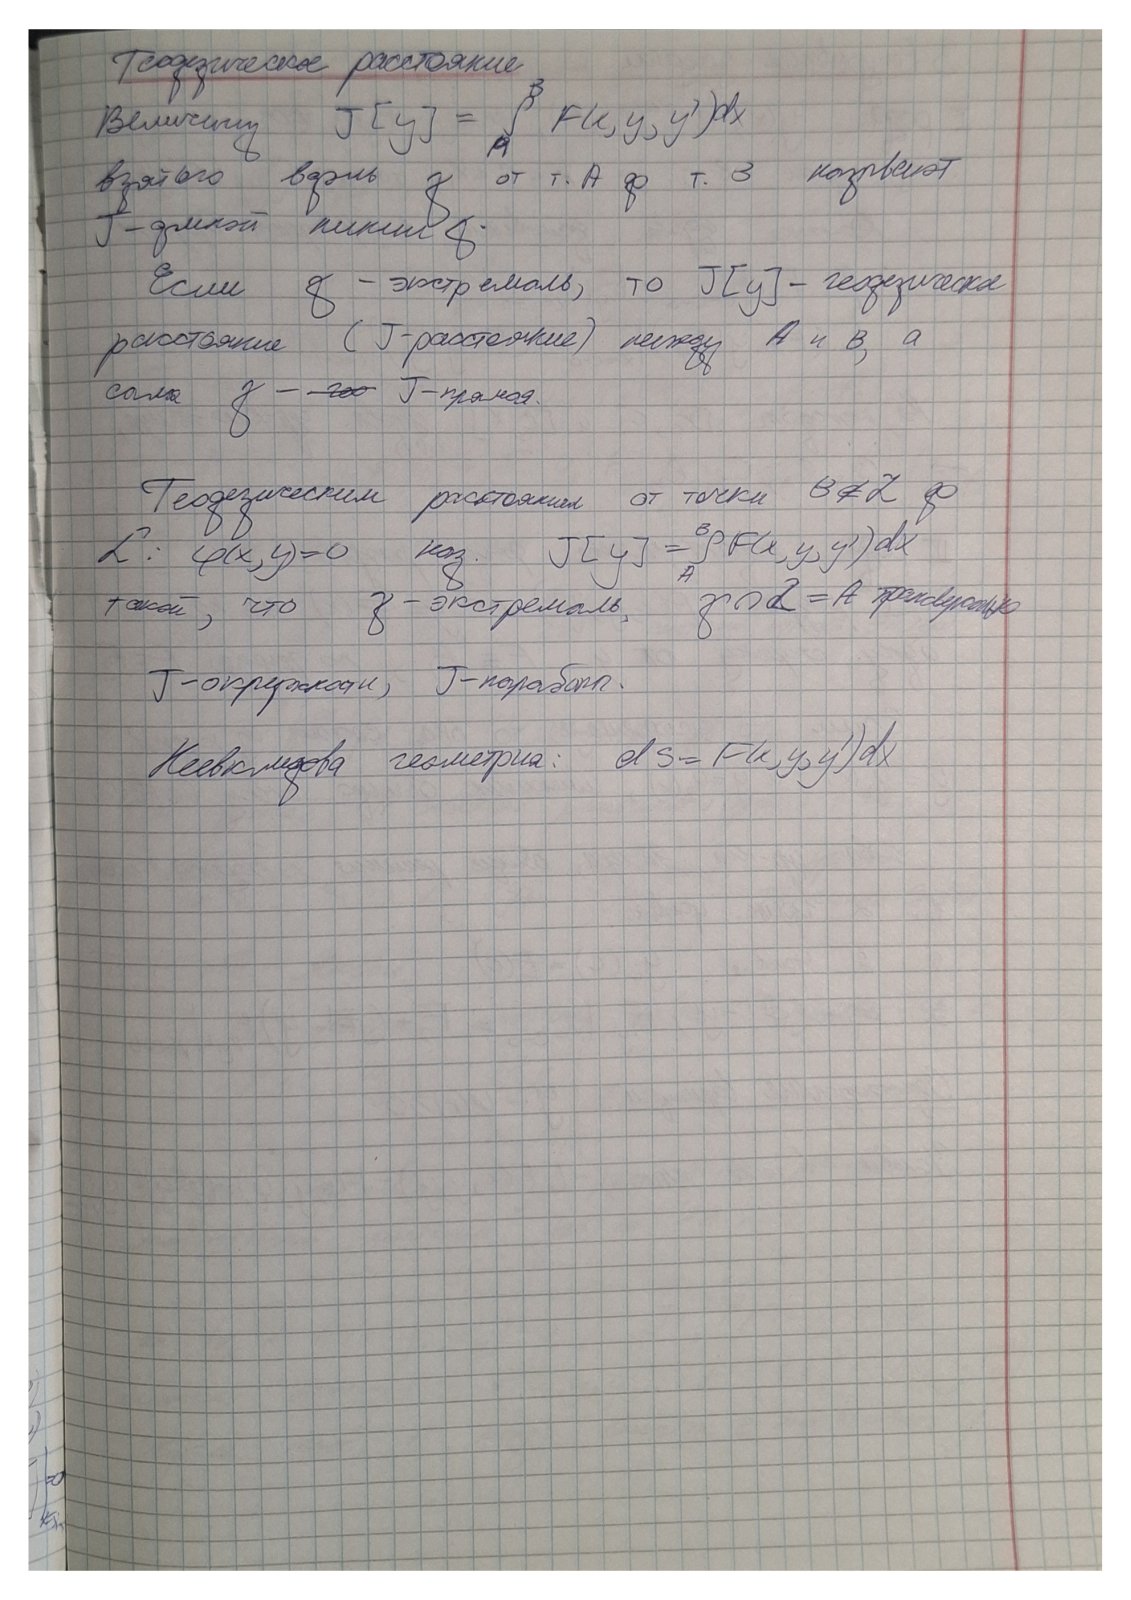 Геодезическое расстояние
Величину J[y] = ∫_A^B F(x, y, y')dx
взятого вдоль γ от т. A до т. B называют
J-длиной линии γ.
Если γ - экстремаль, то J[y] - геодезическое
расстояние (J-расстояние) между A и B, а
сама γ - J-прямая.
Геодезическим расстоянием от точки B ∉ L до
L: φ(x, y)=0 наз. J[y] = ∫_A^B F(x, y, y')dx
такой, что γ - экстремаль, γ ∩ L = A трансверсально
J-окружности, J-параболы.
Неевклидова геометрия: ds = F(x, y, y')dx